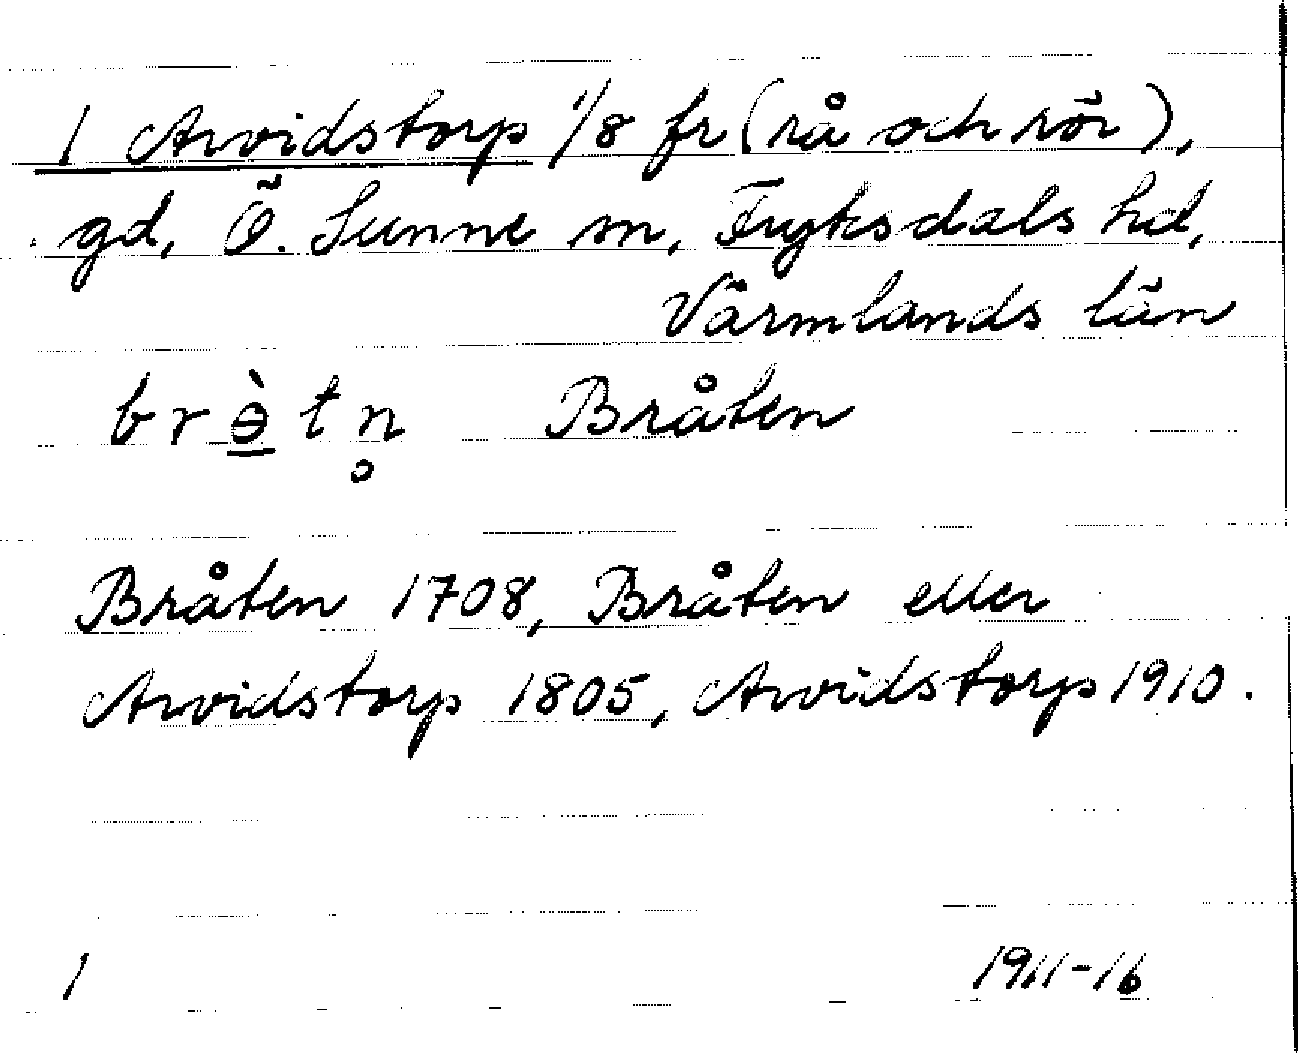 1 Arvidstorp 1/8 fr (rå och rör),
gd, Ö. Sunne sn, Fryksdals hd,
Värmlands län
br<u>ə̀</u>tn̥ Bråten
Bråten 1708, Bråten eller
Arvidstorp 1805, Arvidstorp 1910.
1 1911-16